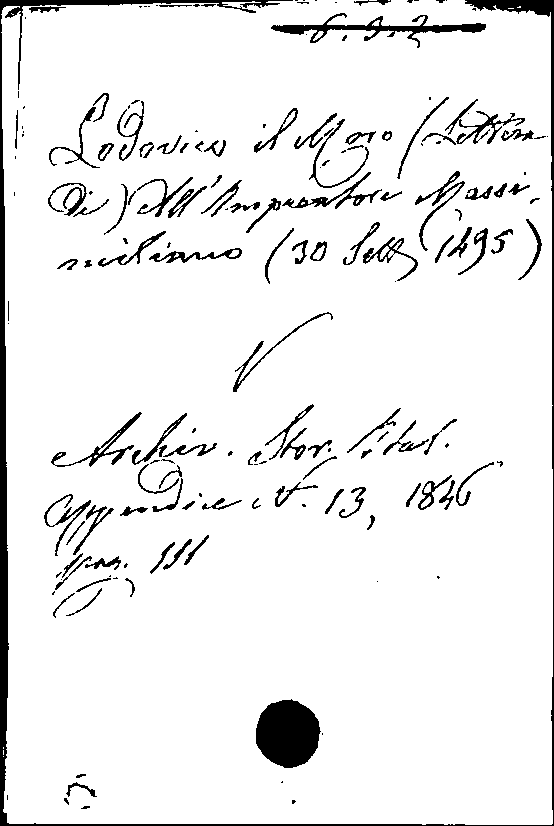 6.9.2
Lodovico il Moro (Lettera
Di) All'Imperatore Massi-
miliano (30 Sett 1495)
V
Archiv. Stor. Ital.
Appendice N. 13, 1846
pag. 111